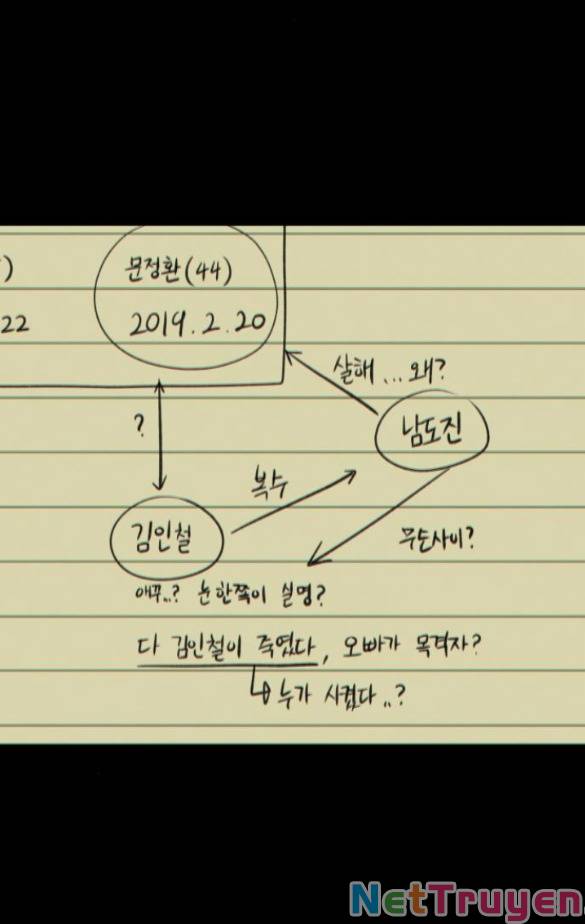 )
문정환(44)
22
2019.2.20
살해...왜?
?
남도진
복수
김인철
무슨사이?
애꾸..? 눈한쪽이 실명?
다 김인철이 죽였다, 오빠가 목격자?
누가 시켰다..?
NetTruyen